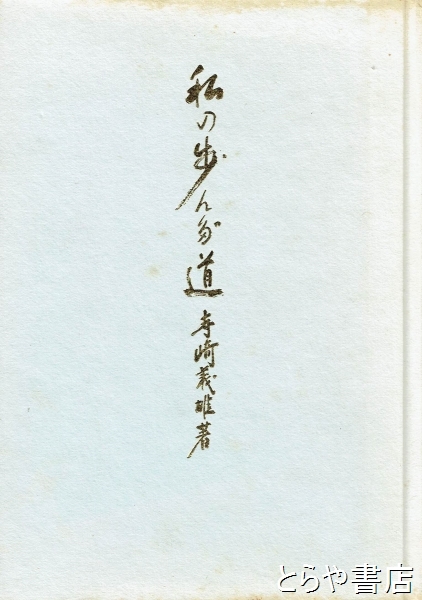 私の歩んだ道
寺崎義雄著
とらや書店